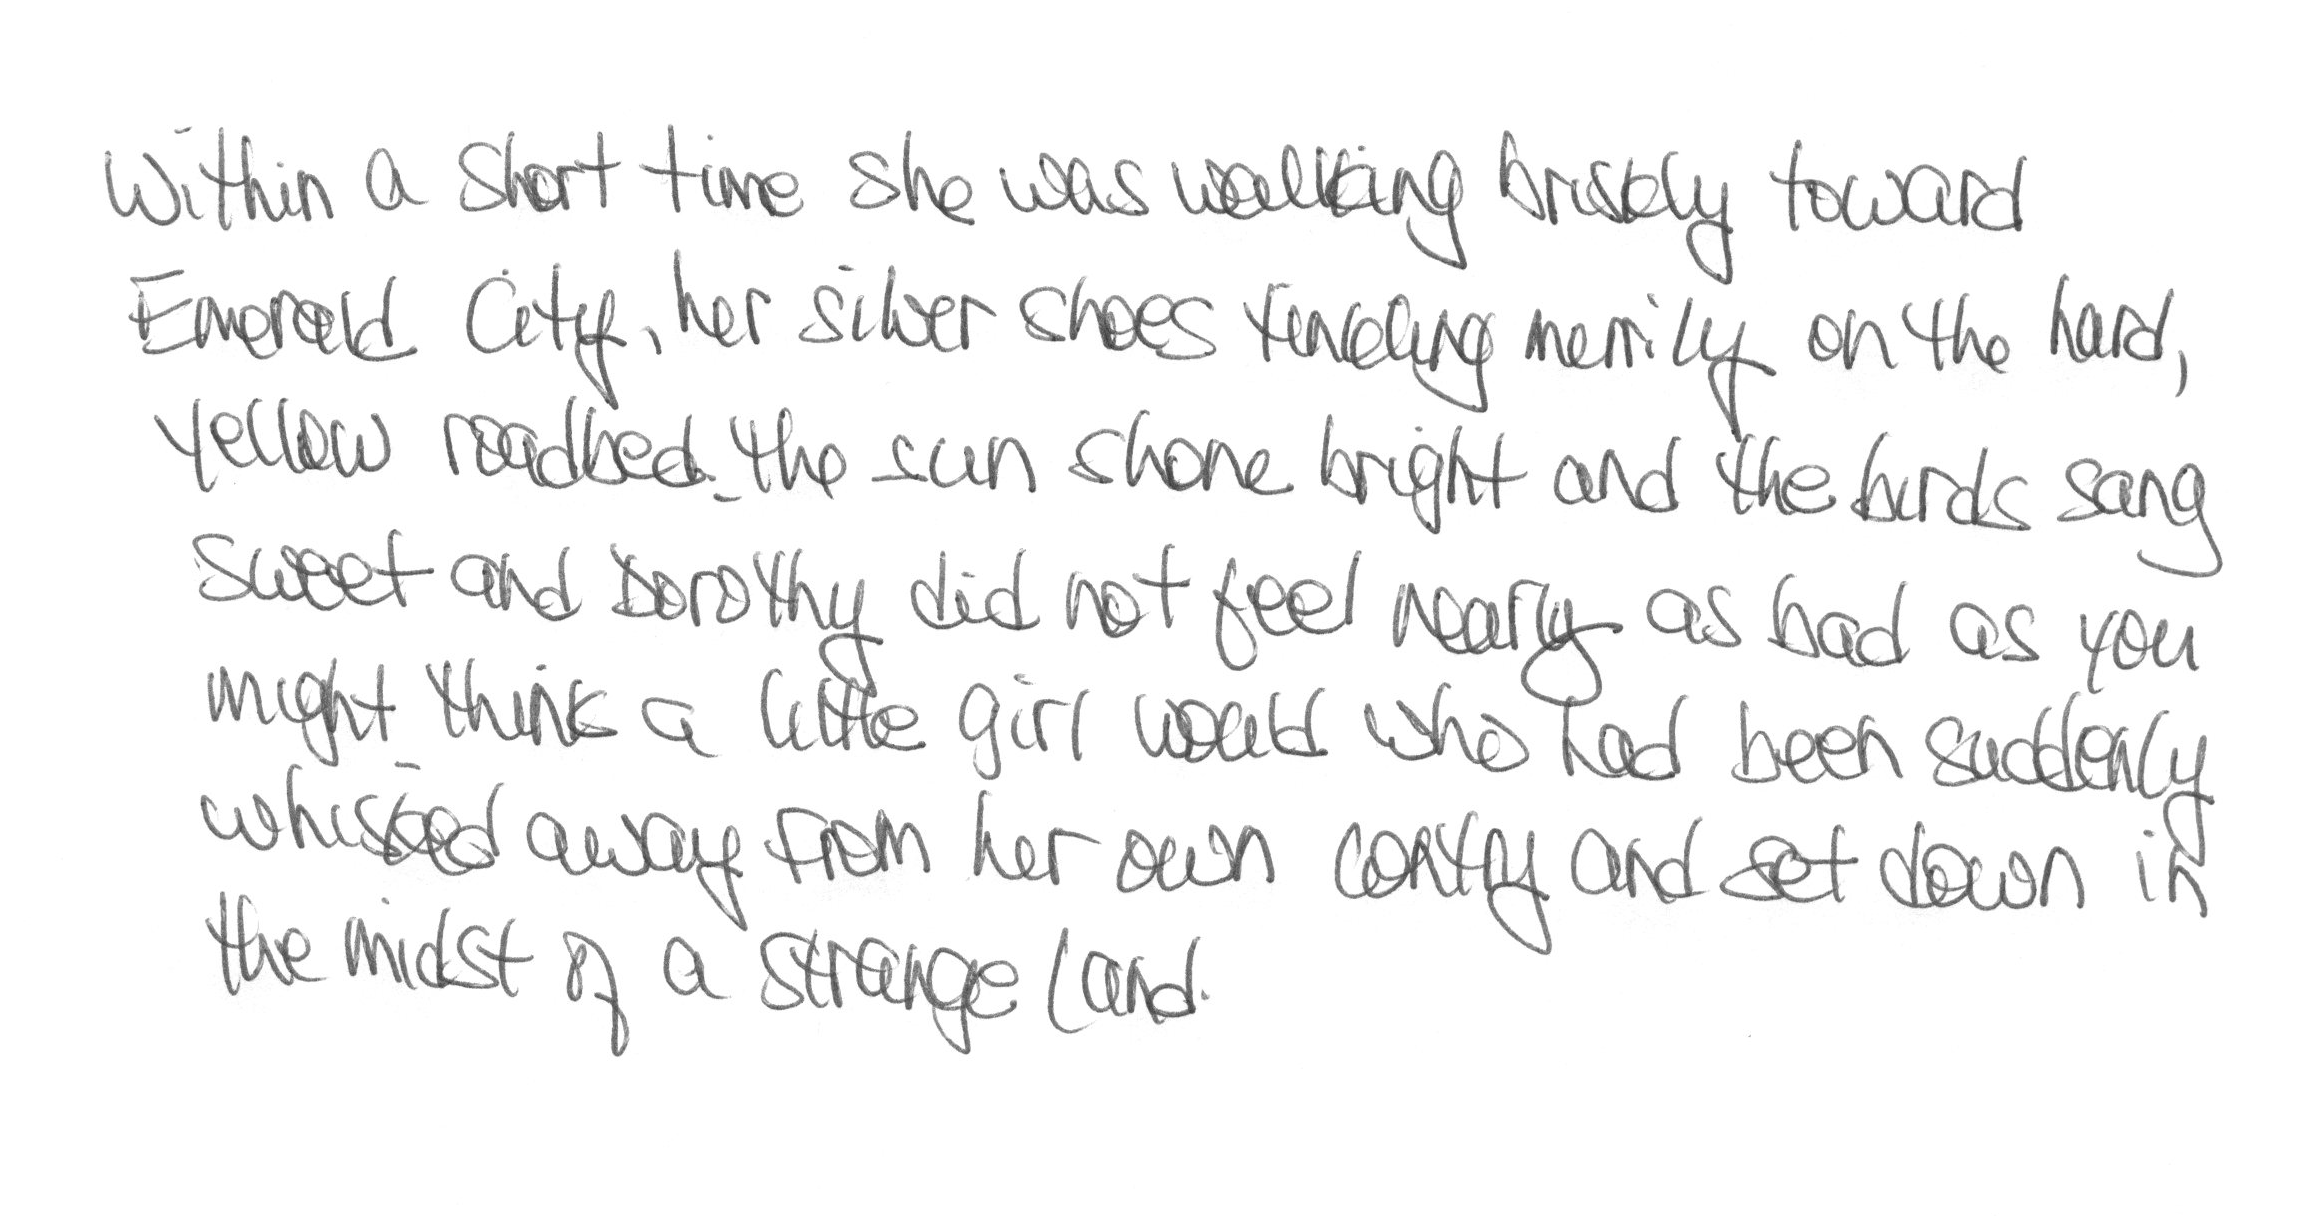 Within a short time she was walking briskly toward
Emerald City, her silver shoes tinkling merrily on the hard,
yellow roadbed. The sun shone bright and the birds sang
sweet and Dorothy did not feel nearly as bad as you
might think a little girl would who had been suddenly
whisked away from her own contry and set down in
the midst of a strange land.